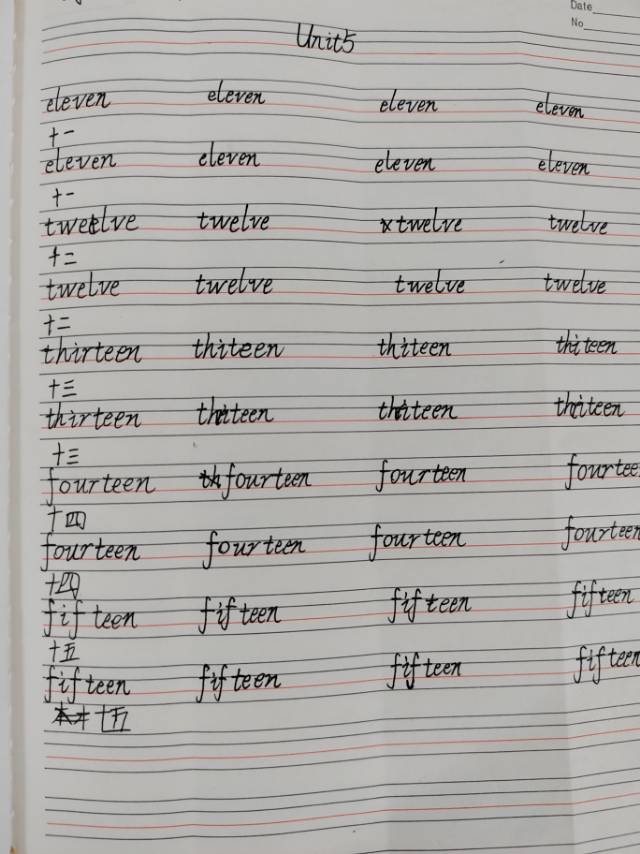 Date
No
Unit5
eleven eleven eleven eleven
十一
eleven eleven eleven eleven
十一
twelve twelve twelve twelve
十二
twelve twelve twelve twelve
十二
thirteen thiteen thiteen thiteen
十三
thirteen thiteen thiteen thiteen
十三
fourteen fourteen fourteen fourtee
十四
fourteen fourteen fourteen fourteen
十四
fifteen fifteen fifteen fifteen
十五
fifteen fifteen fifteen fifteen
十五